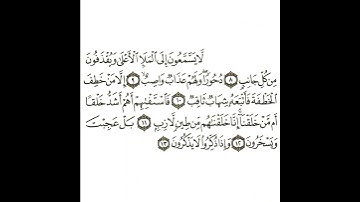 لَّا يَسَّمَّعُونَ إِلَى ٱلْمَلَإِ ٱلْأَعْلَىٰ وَيُقْذَفُونَ
مِن كُلِّ جَانِبٍ ٨ دُحُورًا وَلَهُمْ عَذَابٌ وَاصِبٌ ٩ إِلَّا مَنْ خَطِفَ
ٱلْخَطْفَةَ فَأَتْبَعَهُۥ شِهَابٌ ثَاقِبٌ ١٠ فَٱسْتَفْتِهِمْ أَهُمْ أَشَدُّ خَلْقًا
أَم مَّنْ خَلَقْنَآ إِنَّا خَلَقْنَٰهُم مِّن طِينٍ لَّازِبٍۭ ١١ بَلْ عَجِبْتَ
وَيَسْخَرُونَ ١٢ وَإِذَا ذُكِّرُوا۟ لَا يَذْكُرُونَ ١٣